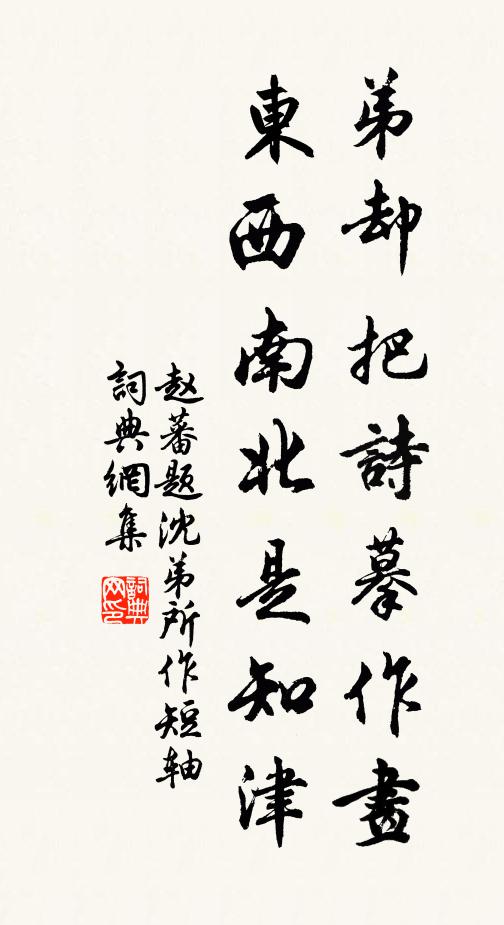 弟却把詩摹作畫
東西南北是知津
赵蕃题沈弟所作短轴
詞典網集
詞典網印